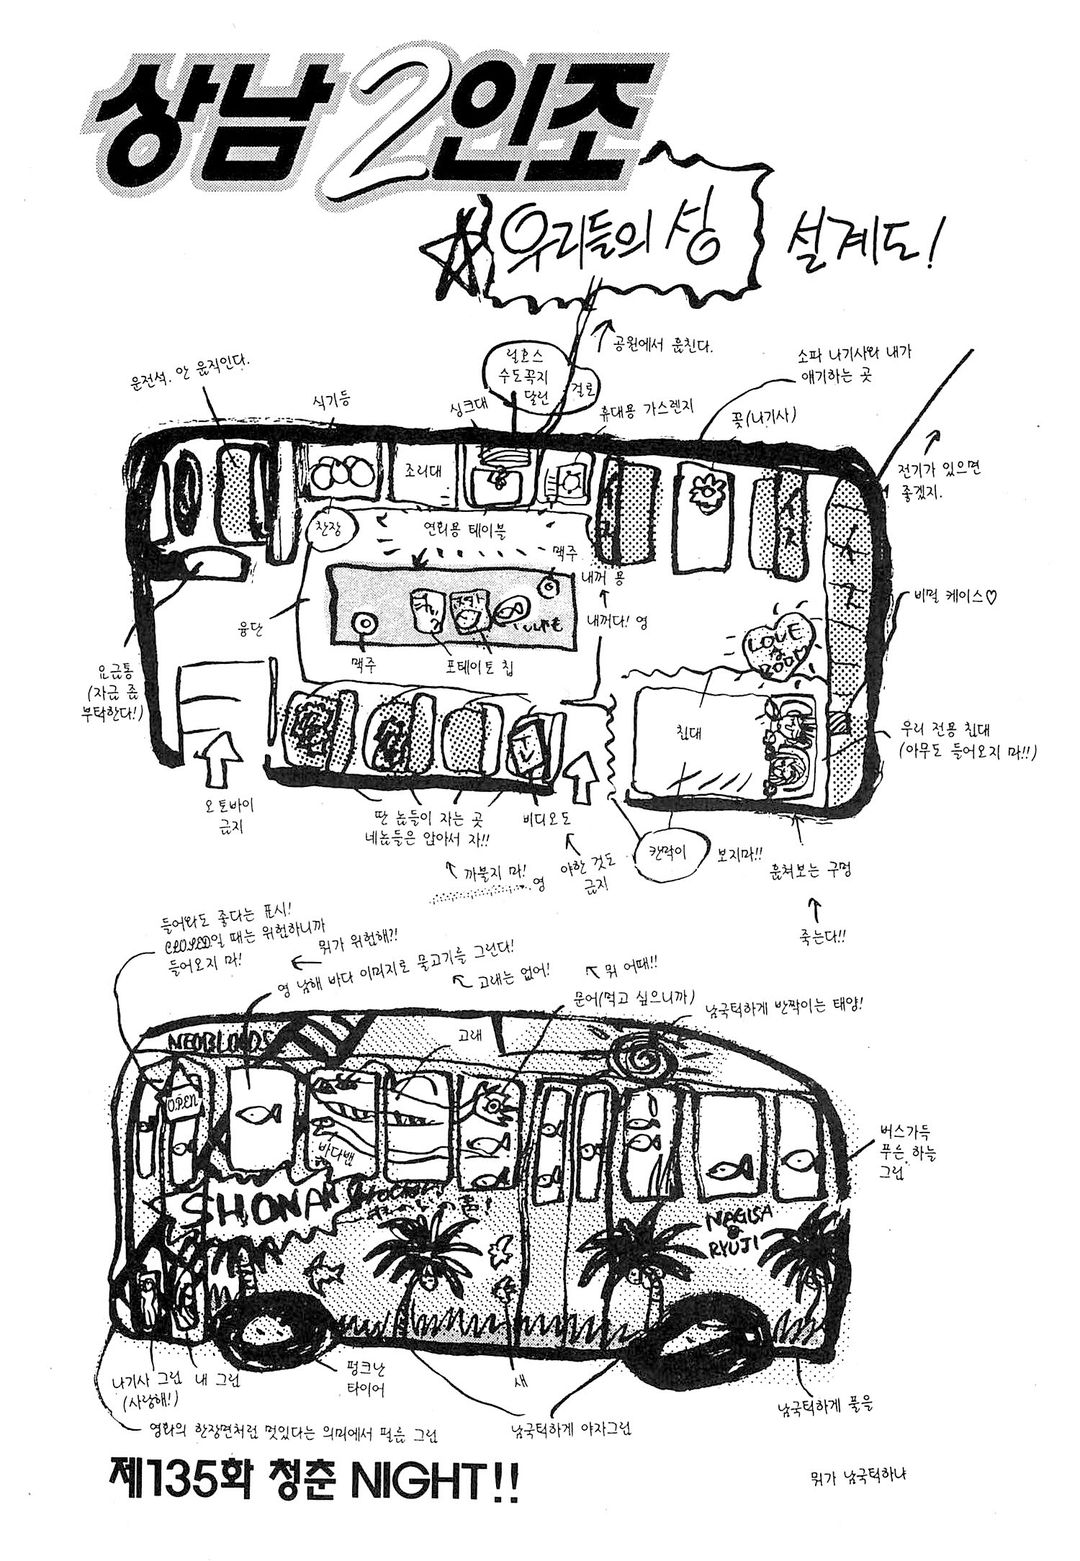 상남2인조
우리들의 성 설계도!
공원에서 훔친다.
운전석. 안 움직인다.
식기등
싱크대
릴호스
수도꼭지
달린
걸로
휴대용 가스렌지
소파 나기사와 내가
얘기하는 곳
꽃(나기사)
전기가 있으면
좋겠지.
조리대
찬장
연회용 테이블
맥주
내꺼 용
내꺼다! 영
융단
맥주
포테이토 칩
비밀 케이스♡
LOVE
ROOM
요금통
(자금 좀
부탁한다!)
침대
우리 전용 침대
(아무도 들어오지 마!!)
오토바이
금지
딴 놈들이 자는 곳
네놈들은 앉아서 자!!
비디오도
까불지 마!
영
야한 것도
금지
칸막이
보지마!!
훔쳐보는 구멍
죽는다!!
들어와도 좋다는 표시!
CLOSED일 때는 위험하니까
들어오지 마!
뭐가 위험해?!
영 남해 바다 이미지로 물고기를 그린다!
고래는 없어!
뭐 어때!!
문어(먹고 싶으니까)
남국틱하게 반짝이는 태양!
NEOBLOODS
고래
OPEN
바다뱀
SHONAN
NAGISA
&
RYUJI
버스가득
푸른 하늘
그림
나기사 그림
(사랑해!)
내 그림
펑크난
타이어
새
남국틱하게 야자그림
남국틱하게 풀을
영화의 한장면처럼 멋있다는 의미에서 필름 그림
제135화 청춘 NIGHT!!
뭐가 남국틱하냐